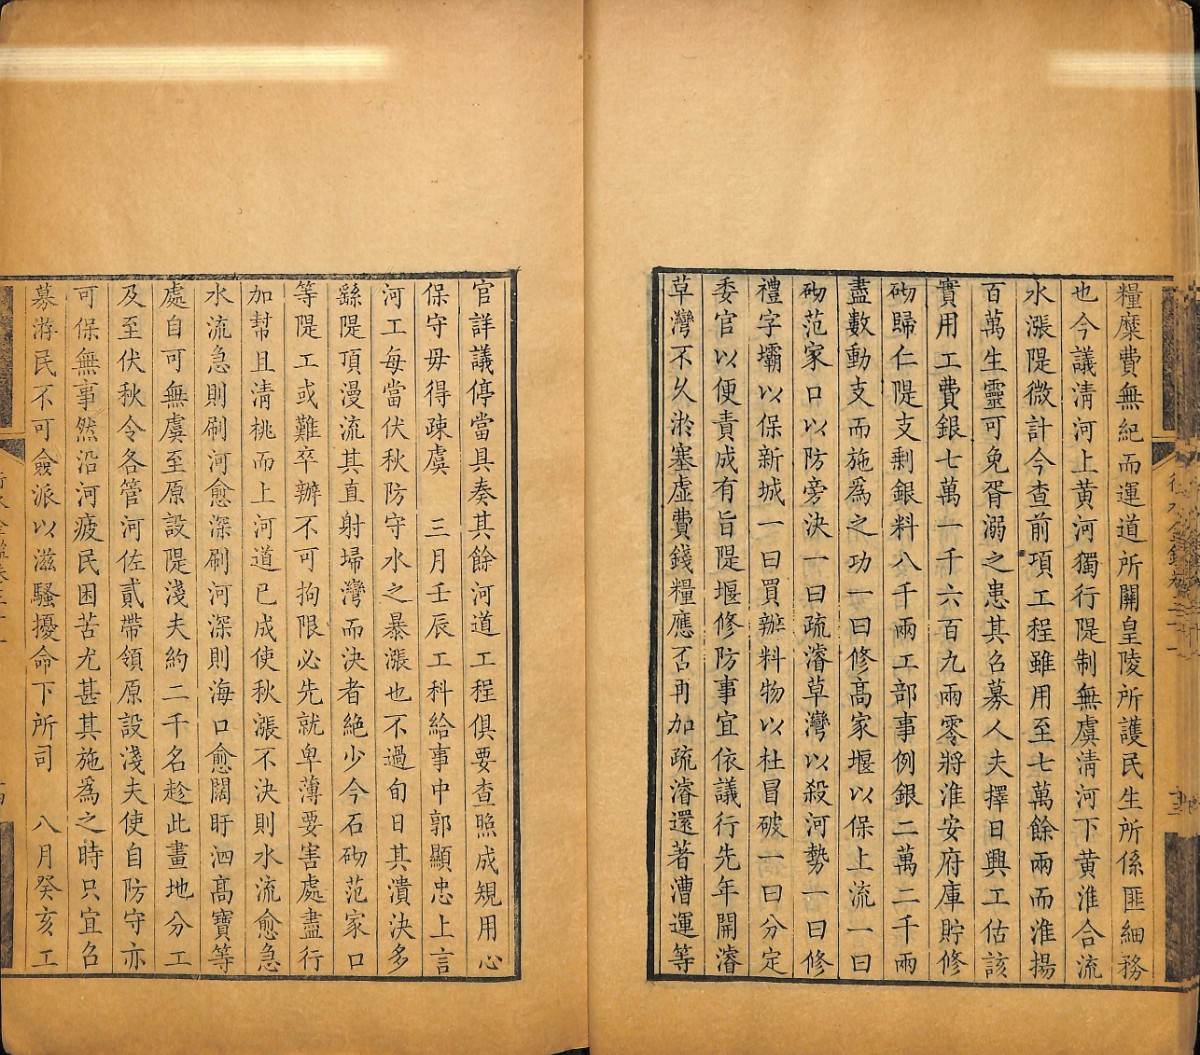 糧糜費無紀而運道所關皇陵所護民生所係匪細務
也今議淸河上黃河獨行隄制無虞淸河下黃淮合流
水漲隄微計今查前項工程雖用至七萬餘兩而淮揚
百萬生靈可免胥溺之患其召募人夫擇日興工估該
實用工費銀七萬一千六百九兩零將淮安府庫貯修
砌歸仁隄支剩銀料八千兩工部事例銀二萬二千兩
盡數動支而施爲之功一曰修高家堰以保上流一曰
砌范家口以防旁決一曰疏濬草灣以殺河勢一曰修
禮字壩以保新城一曰買辦料物以杜冒破一曰分定
委官以便責成有旨隄堰修防事宜依議行先年開濬
草灣不久淤塞虛費錢糧應否再加疏濬還著漕運等
官詳議停當具奏其餘河道工程俱要查照成規用心
保守毋得疎虞　三月壬辰工科給事中郭顯忠上言
河工每當伏秋防守水之暴漲也不過旬日其潰決多
繇隄頂漫流其直射埽灣而決者絶少今石砌范家口
等隄工或難卒辦不可拘限必先就卑薄要害處盡行
加幫且淸桃而上河道已成使秋漲不決則水流愈急
水流急則刷河愈深刷河深則海口愈闊盱泗高寶等
處自可無虞至原設隄淺夫約二千名趁此畫地分工
及至伏秋令各管河佐貳帶領原設淺夫使自防守亦
可保無事然沿河疲民困苦尤甚其施爲之時只宜召
募游民不可僉派以滋騷擾命下所司　八月癸亥工